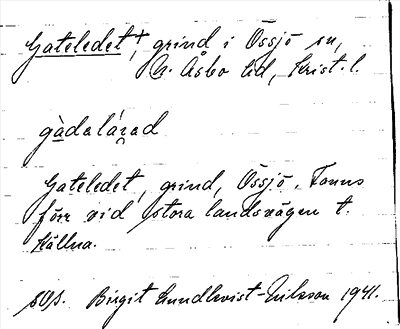 Gateledet, grind i Össjö sn,
N. Åsbo hd, Krist. l.
gàdaláʒad
Gateledet, grind, Össjö. Fanns
förr vid stora landsvägen t.
Källna.
Birgit Lundkvist-Nilsson 1941.